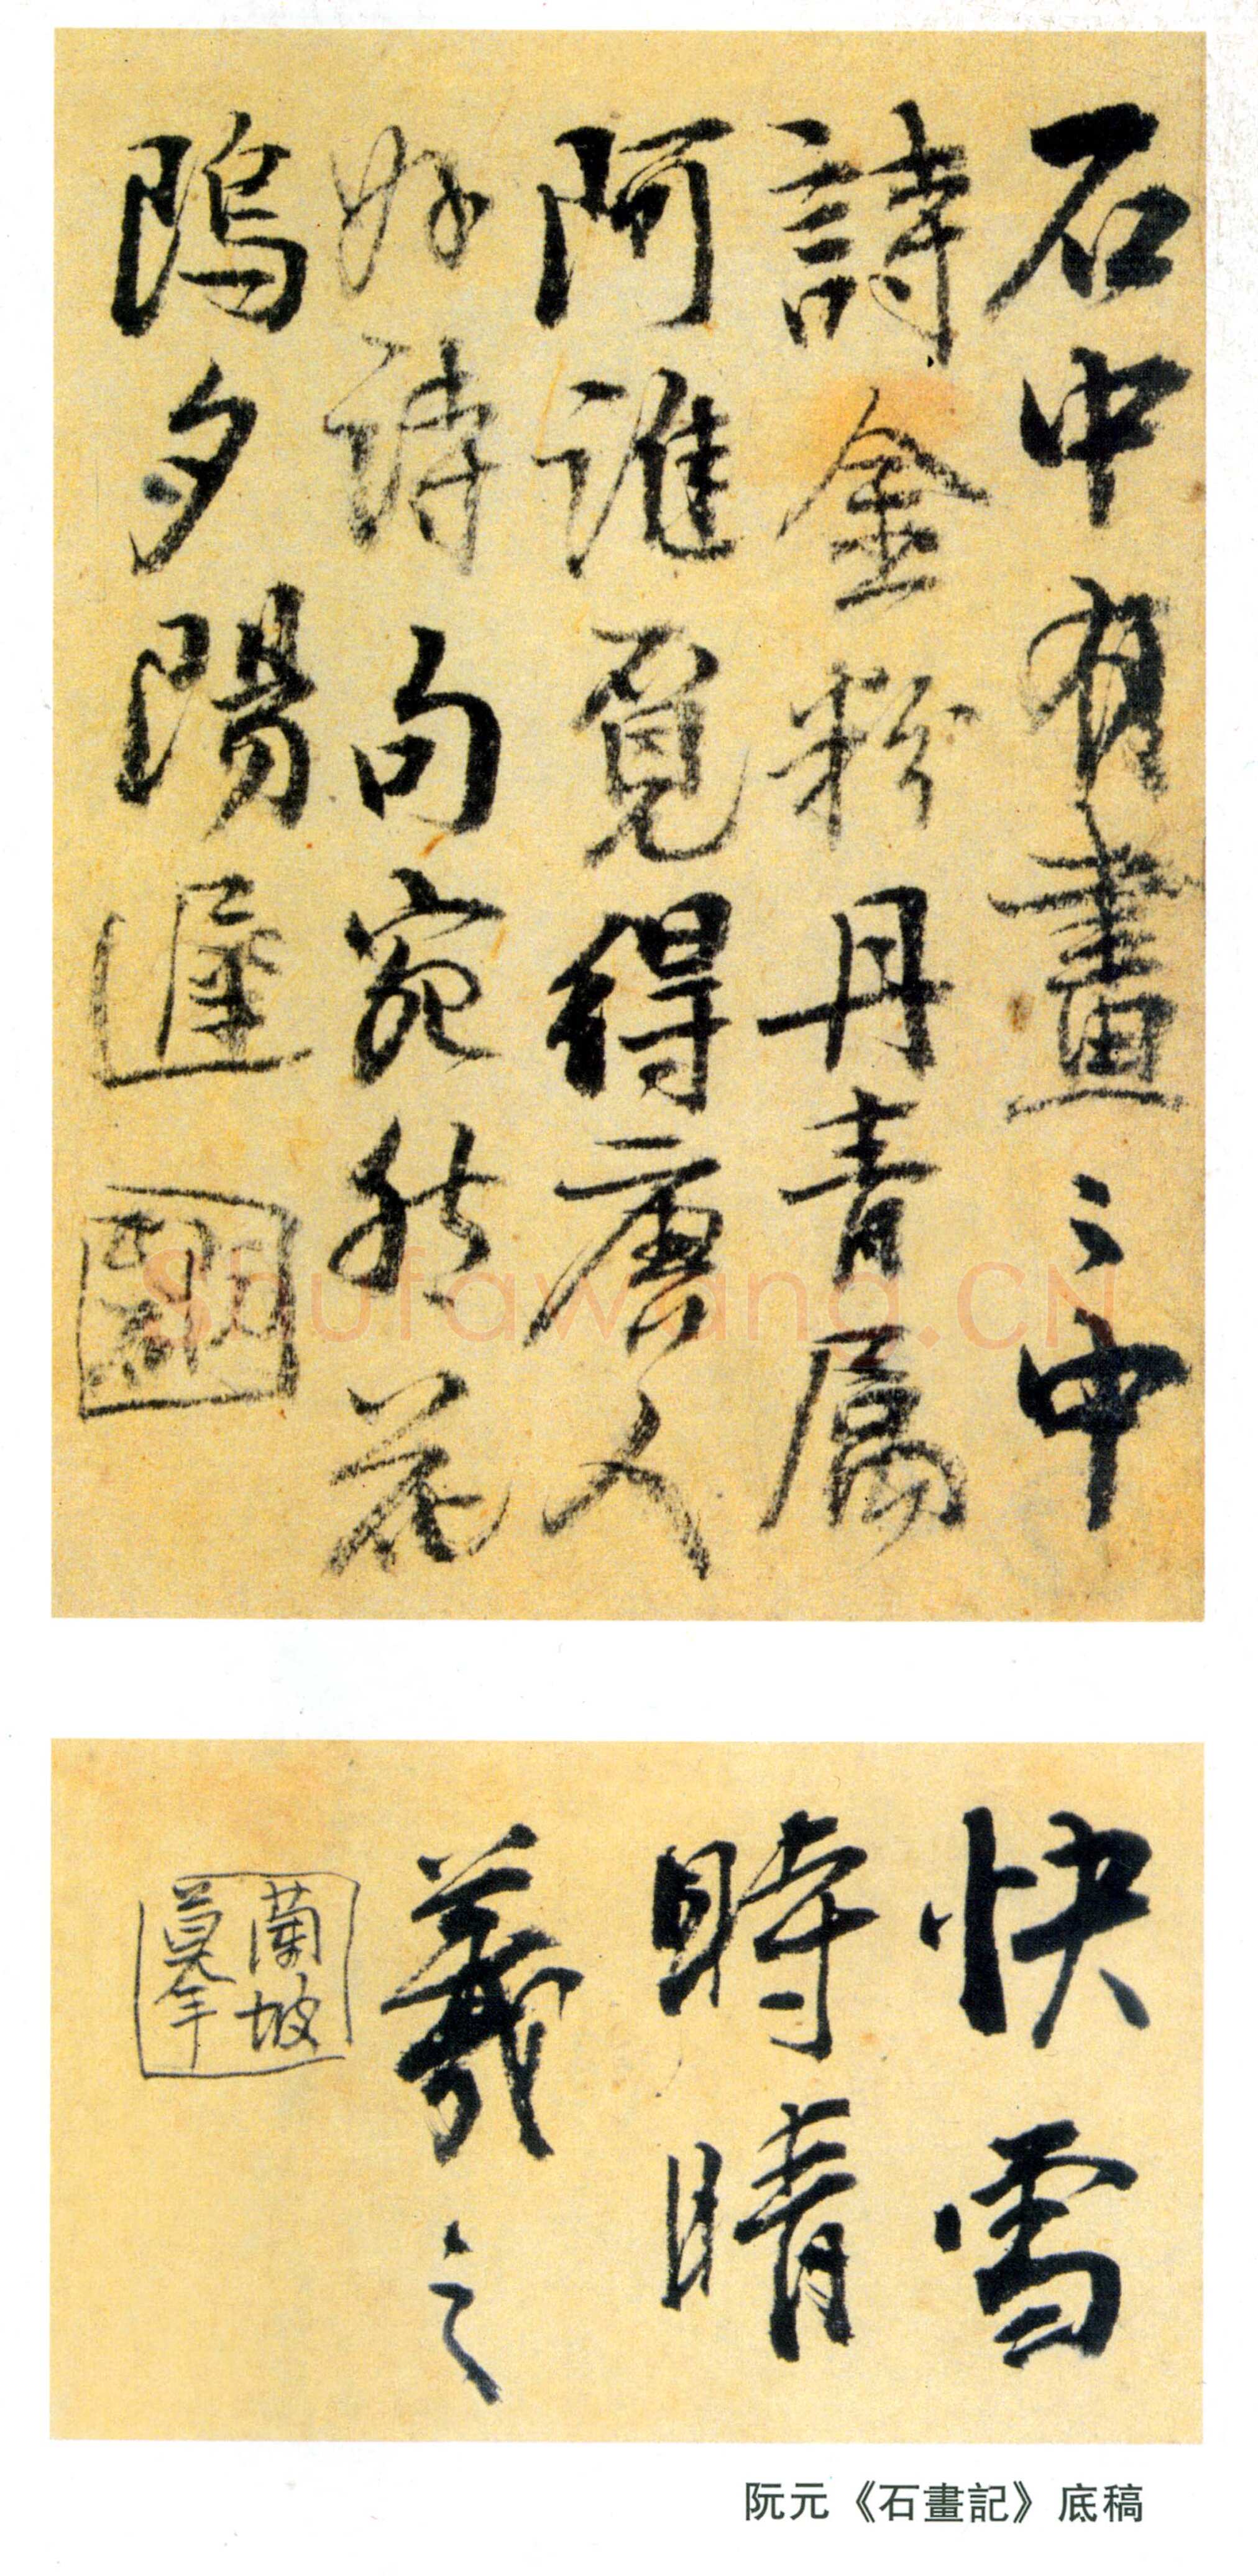 石中有畫〻中
詩金粉丹青属
阿誰覓得唐人
好詩句宛然花
隖夕陽遲
快雪
時晴
羲之
蘭坡
阮元《石畫記》底稿
Shufawang.CN